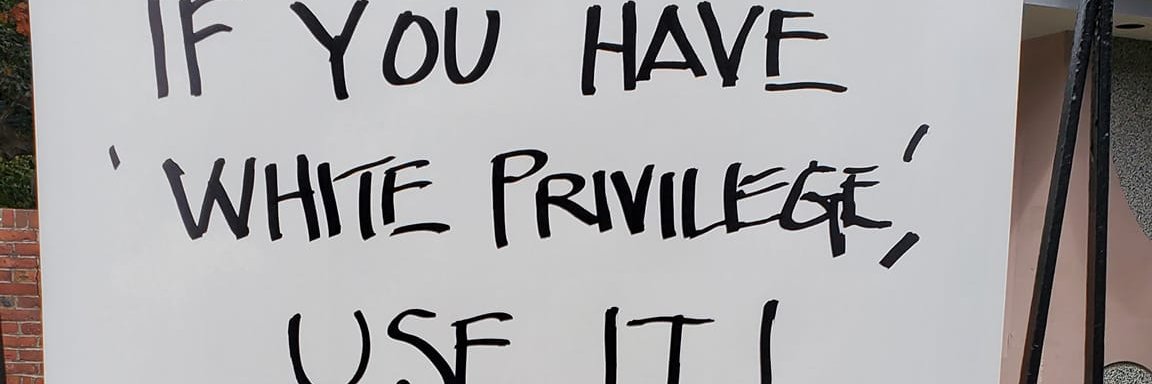 IF YOU HAVE
'WHITE PRIVILEGE,'
USE IT!